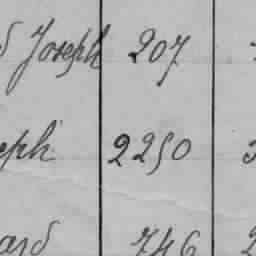 Joseph 207
eph 2250
ard 746